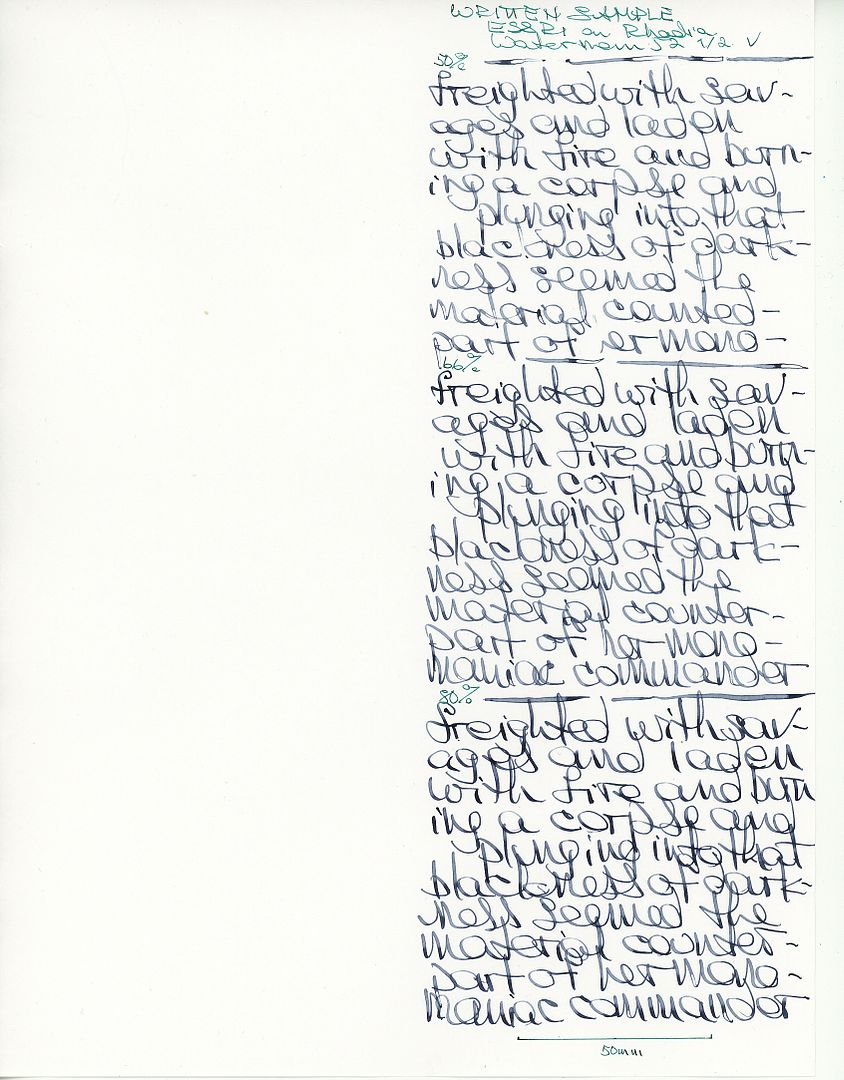 WRITTEN SAMPLE
ESSRI on Rhodia
Waterman 52 1/2 V
50%
freighted with sav-
ages and laden
with fire and burn-
ing a corpse and
plunging into that
blackness of dark-
ness seemed the
material counted-
part of her mono-
66%
freighted with sav-
ages and laden
with fire and burn-
ing a corpse and
plunging into that
blackness of dark-
ness seemed the
material counter-
part of her mono-
maniac commandor
80%
freighted with sav-
ages and laden
with fire and burn
ing a corpse and
plunging into that
blackness of dark-
ness seemed the
material counter-
part of her mono-
maniac commandor
50mm